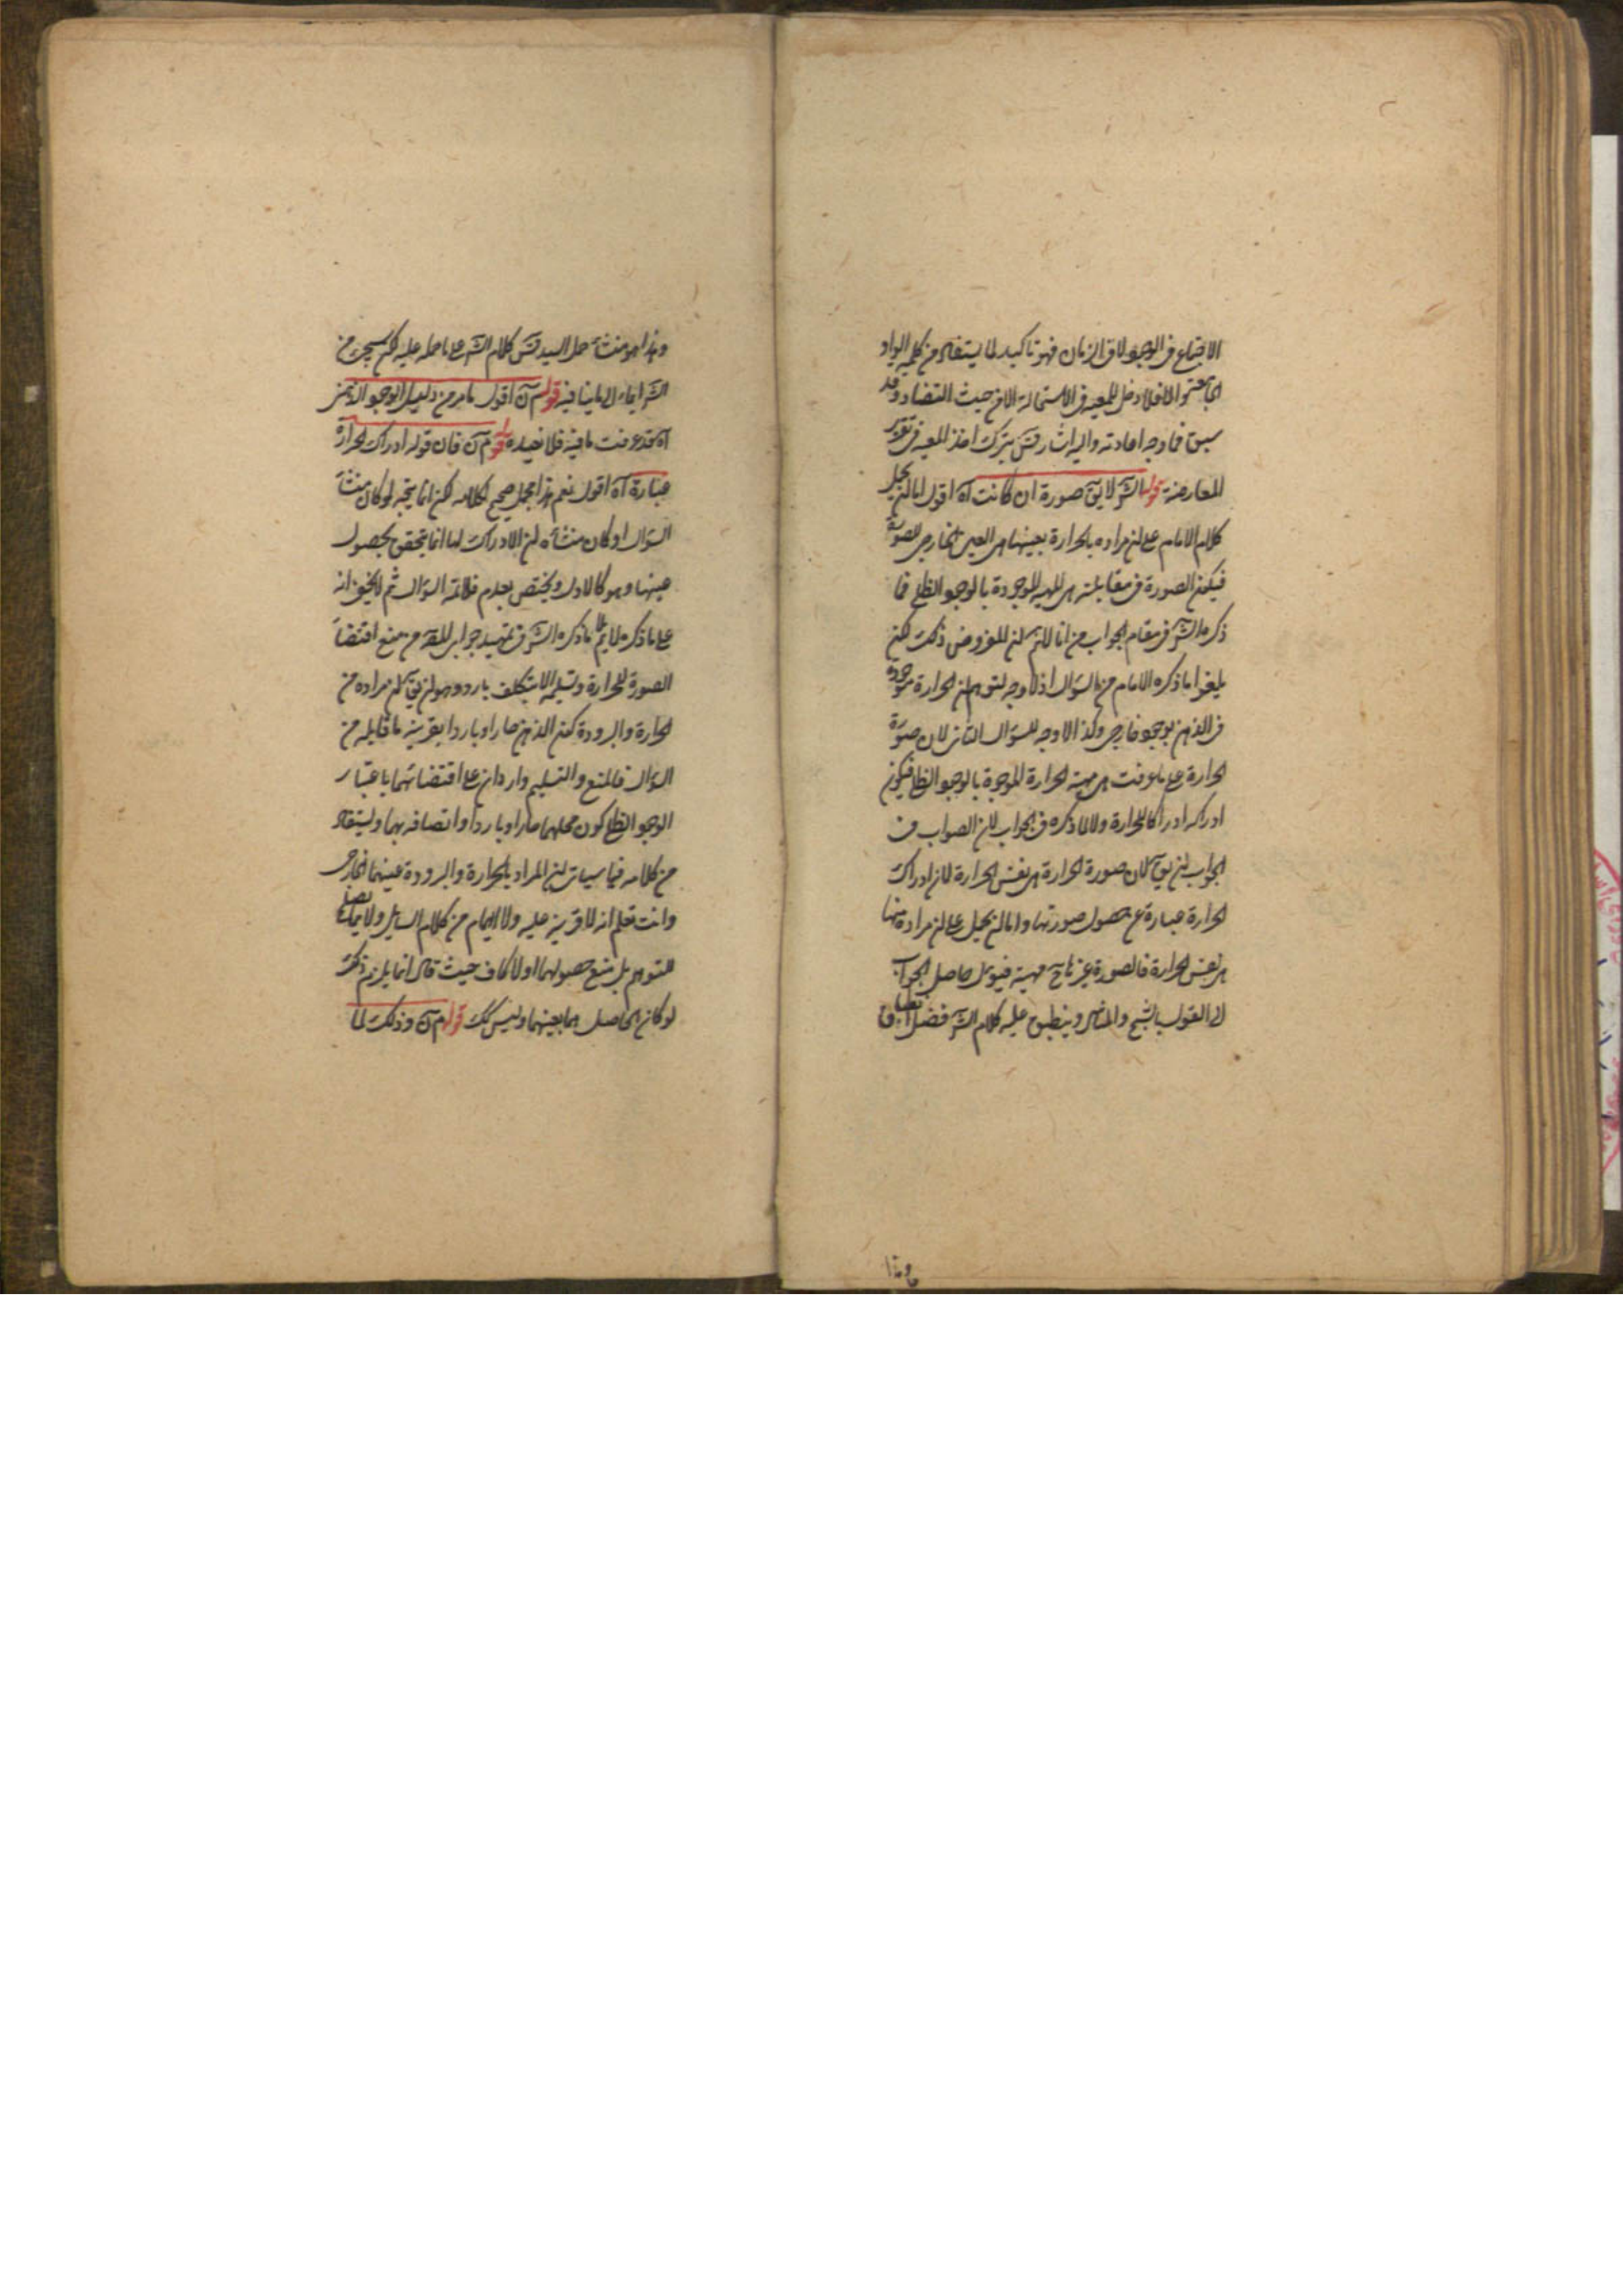 الاجتماع فى الوجود لا فى الزمان فهو تاكيد لما يستفاد من كلمة الواو
الجامعة والا فلا دخل للمعية فى الاستحالة الا من حيث التضاد وقد
سبق فما وجه اعادته واليه اشار قس بترك اخذ المعية فى تقرير
المعارضة قوله الشر لا يق صورة ان كانت آه اقول اما لن يحمل
كلام الامام على لن مراده بالحرارة بعينها هى العين الخارجى للصورة
فيكون الصورة فى مقابلته هى المهية الموجودة بالوجود الظلى فما
ذكره الشر فى مقام الجواب من انا لانم لن المفروض ذلك لكن
يلغوا ما ذكره الامام من السؤال اذ لا وجه لتوهم لن الحرارة موجودة
فى الذهن بوجود خارجى وكذا لا وجه للسؤال الثانى لان صورة
الحرارة على ما عرفت هى مهية الحرارة الموجودة بالوجود الظلى فيكون
ادراكه ادراكا للحرارة ولا لما ذكره فى الجواب لان الصواب فى
الجواب لن يق لان صورة الحرارة هى نفس الحرارة لان ادراك
الحرارة عبارة عن حصول صورتها واما لن يحمل على لن مراده منها
هى نفس الحرارة فالصورة عن مهية فيؤل حاصل الجواب
الى القول بالشبح والمثال وينطبق عليه كلام الشر فضل
وهذا
وهذا هو منشأ حمل السيد قس كلام الشر على ما حمله عليه لكن سيجئ من
الشر ايماء الى ما ينافيه قوله س آن اقول ما مر من دليل الوجود الذهنى
آه قد عرفت ما فيه فلا نعيده قوله م آن فان قوله ادراك الحرارة
عبارة آه اقول نعم هذا محمل صحيح لكلامه لكن انما يتجه لو كان منشأ
السؤال او كان منشأه لن الادراك لها انما يتحقق بحصول
عينها وهو كالاول ويختص بعدم فلائمة السؤال ثم لا يخفى انه
على ما ذكره لا يم ما ذكره الشر فى تمهيد جواب المص من منع اقتضاء
الصورة للحرارة وتسليمه الا بتكلف بارد وهو لن يق لن مراده من
الحرارة والبرودة كون الذهن حارا وباردا بقرينة ما قابله من
السؤال فالمنع والتسليم واردان على اقتضائهما باعتبار
الوجود الظلى كون محلهما حارا وباردا واتصافه بهما ويستفاد
من كلامه فيما سيأتى لن المراد بالحرارة والبرودة عينهما الخارجى
وانت تعلم انه لا قرينة عليه ولا ايهام من كلام السايل ولا
للتوهم بل منع حصولهما اولا كاف حيث قال انما يلزم ذلك
لو كان الحاصل هما بعينهما وليس كك قوله م آن وذلك لما